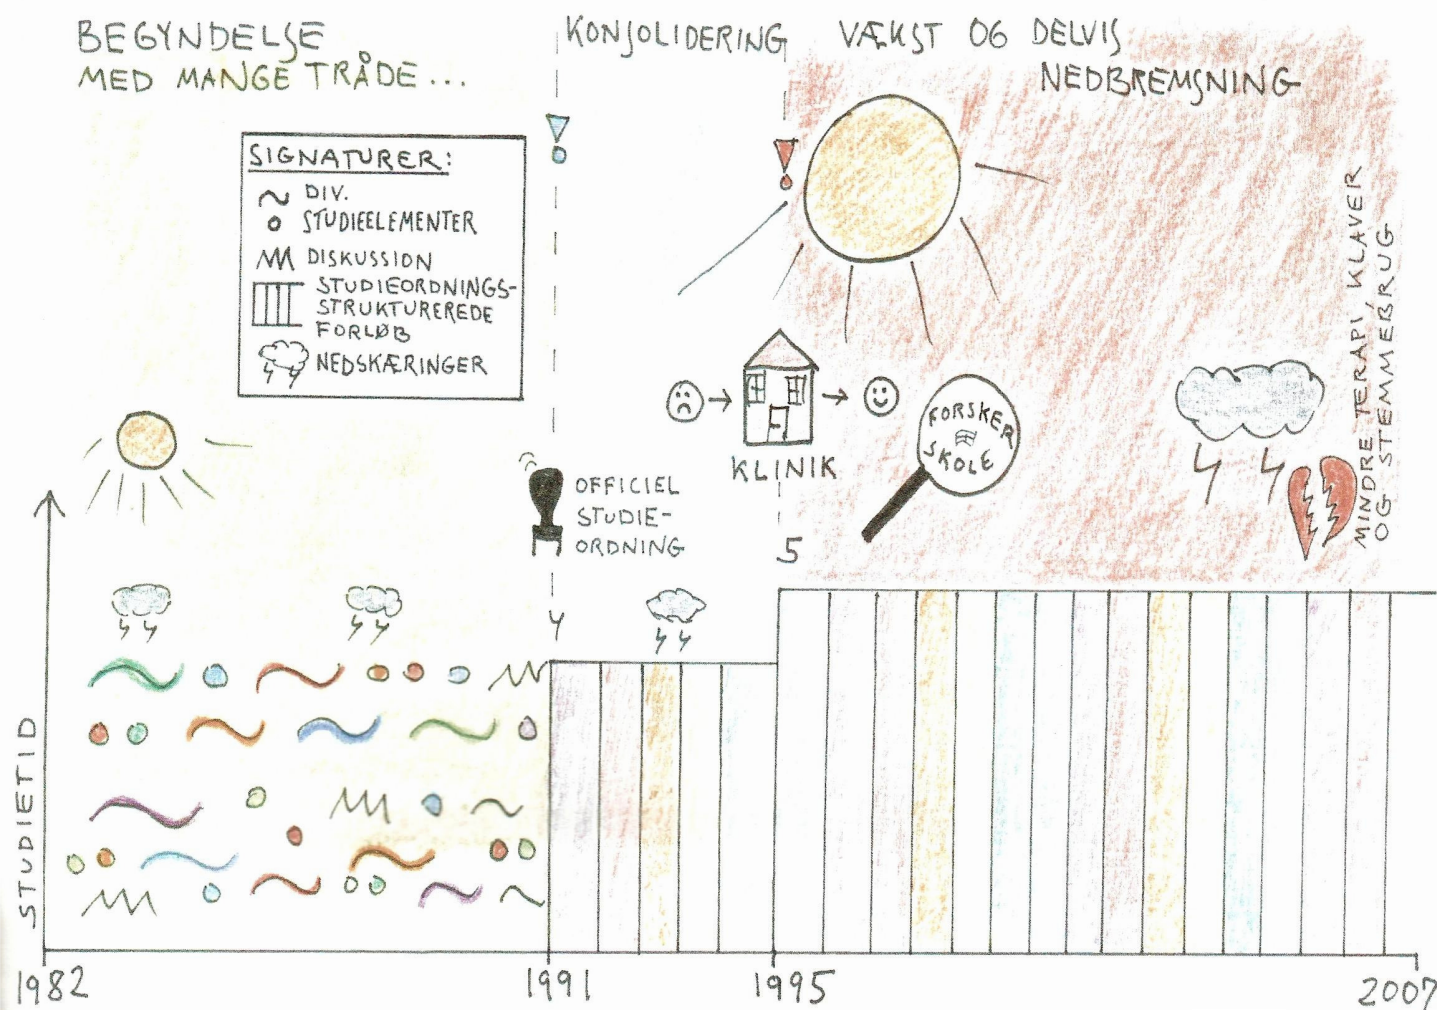 BEGYNDELSE
MED MANGE TRÅDE...
KONSOLIDERING
VÆKST OG DELVIS
NEDBREMSNING
SIGNATURER:
DIV.
STUDIEELEMENTER
DISKUSSION
STUDIEORDNINGS-
STRUKTUREREDE
FORLØB
NEDSKÆRINGER
OFFICIEL
STUDIE-
ORDNING
KLINIK
FORSKER
SKOLE
MINDRE TERAPI, KLAVER
OG STEMMEBRUG
4
5
STUDIETID
1982
1991
1995
2007